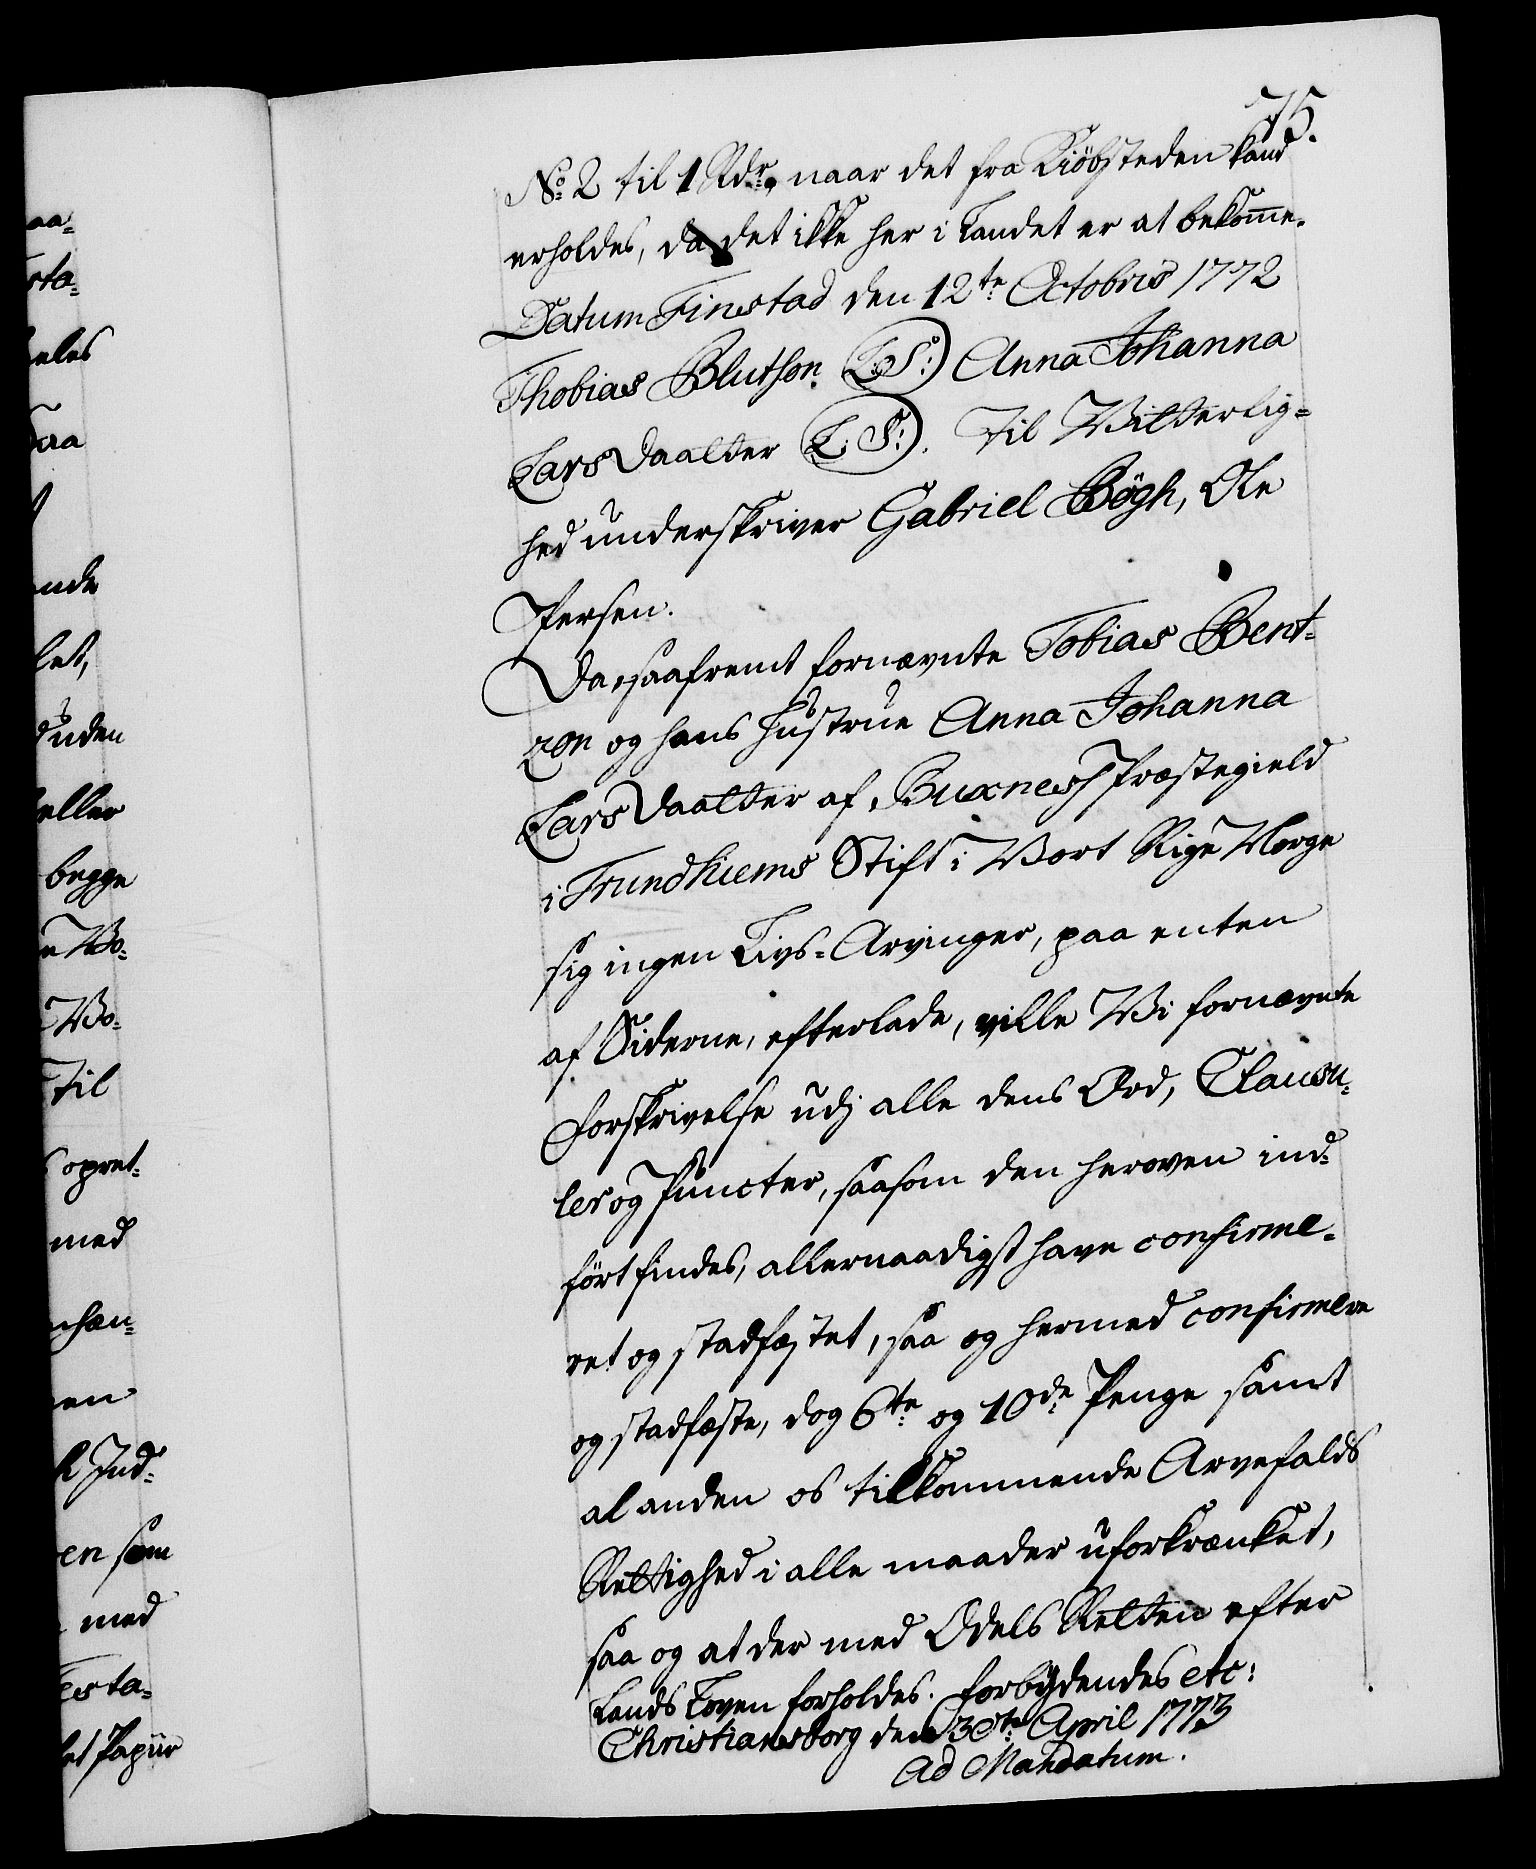 75.
No: 2 til 1 Rdr, naar det fra Kiöbsteden kand
erholdes, da det ikke her i Landet er at bekomme.
Datum Finstad den 12te Octobris 1772
Thobias Blutson. (L:S:) Anna Johanna
Lars Daatter (L:S:). Til Vitterlig-
hed underskriver Gabriel Bögh, Ole
Persen.
Da saafremt fornævnte Tobias Bent-
zon og hans Hustrue Anna Johanna
Lars Daatter af Buxnes Præstegield
i Trundhiems Stift i Vort Rige Norge
sig ingen Livs-Arvinger, paa enten
af Siderne, efterlade, ville Vi fornævnte
Forskrivelse udj alle dens Ord, Clausu-
ler og Puncter, saasom den heroven ind-
fört findes, allernaadigst have confirme-
ret og stadfæstet, saa og hermed confirmere
og stadfæste, dog 6te og 10de Penge samt
al anden os tilkommende Arvefalds
Rettighed i alle maader uforkrænket,
saa og at der med Odels Retten efter
Lands Loven forholdes. Forbydendes etc:
Christiansborg den 30te April 1773
Ad Mandatum.
aa-
sta-
eles
aa
nde
let,
uden
eller
begge
Vo-
Vo-
Til
opret-
med
en
Ind-
en som
med
esta-
et Papiir